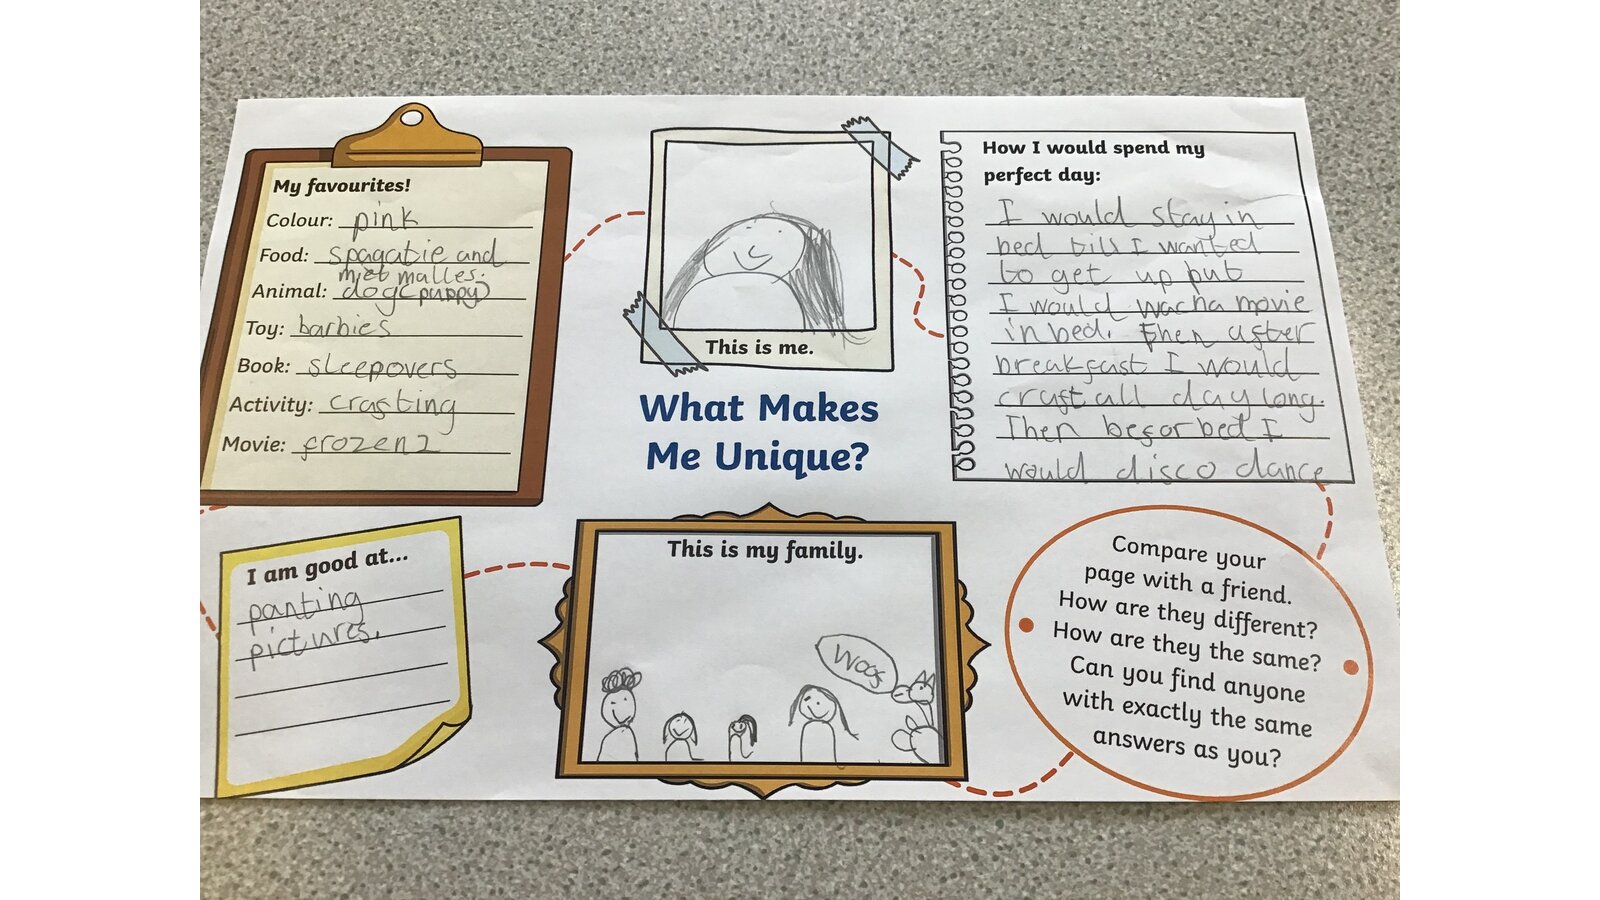 My favourites!
Colour: pink
Food: spagatie and
miet malles.
Animal: dog(puppy)
Toy: barbies
Book: sleepovers
Activity: crafting
Movie: frozen2
This is me.
What Makes
Me Unique?
How I would spend my
perfect day:
I would stay in
bed till I wanted
to get up but
I would wacha movie
in bed. Then after
breakfast I would
craft all day long.
Then befor bed I
would disco dance
I am good at...
panting
pictures.
This is my family.
Woof
Compare your
page with a friend.
How are they different?
How are they the same?
Can you find anyone
with exactly the same
answers as you?